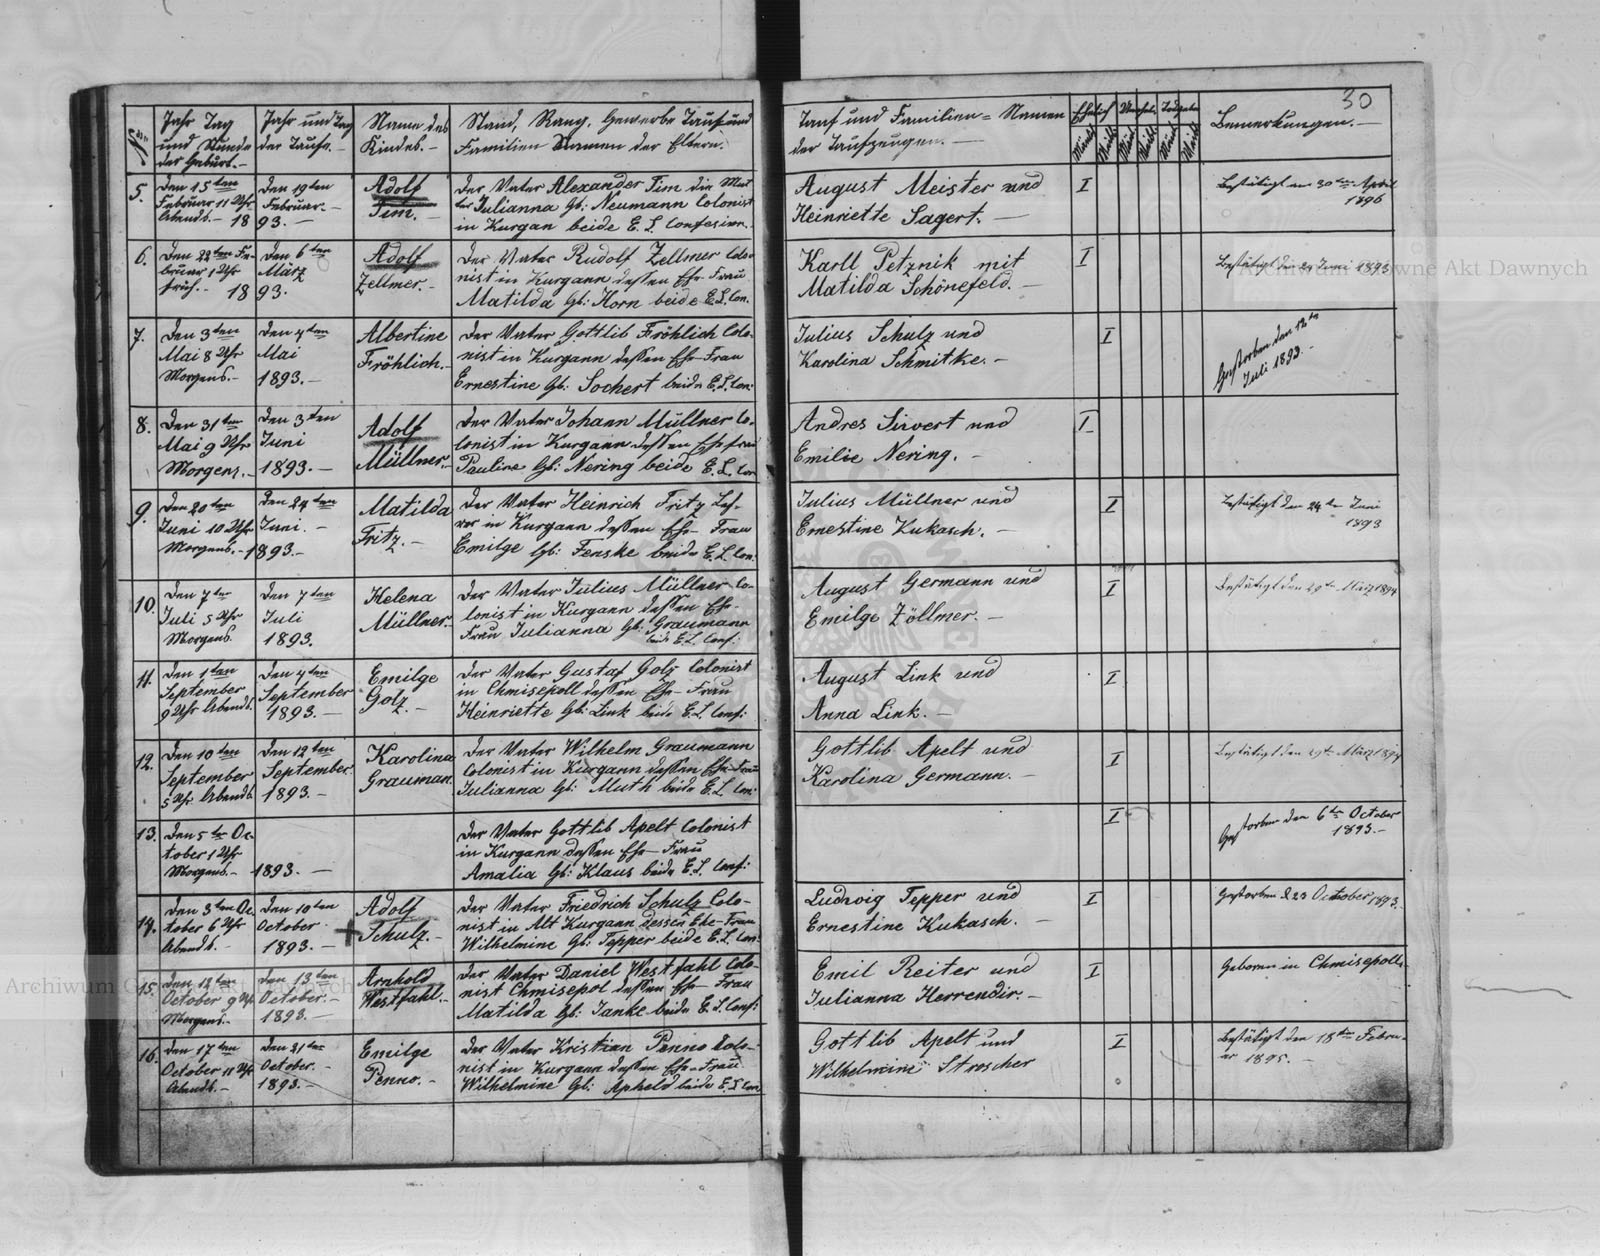 30
No
Jahr Tag
und Stunde
der Geburt.
Jahr und Tag
der Taufe.
Name des
Kindes.
Stand, Rang, Gewerbe Tauf und
Familien Namen der Eltern.
Tauf und Familien = Namen
der Taufzeugen.
Ehelich
Männl.
Weibl.
Männl.
Weibl.
Männl.
Weibl.
Bemerkungen.
5.
Den 15ten
Februar 11 Uhr
Abends. 18
Den 19ten
Februar.
93.
Adolf
Tim.
Der Vater Alexander Tim die Mut
ter Julianna Gb: Neumann Colonist
in Kurgan beide E. L. Confesion.
August Meister und
Heinriette Sagert.
I
Bestätigt am 30ten April
1896
6.
Den 22ten Fe-
bruar 1 Uhr
früh. 18
Den 6ten
März
93.
Adolf
Zellmer.
Der Vater Rudolf Zellmer Colo-
nist in Kurgann deßen Ehe-Frau
Matilda Gb: Horn beide E. L. Con.
Karll Petznik mit
Matilda Schönefeld.
I
Bestätigt den Juni 1893
7.
Den 3ten
Mai 8 Uhr
Morgens.
Den 4ten
Mai
1893.
Albertine
Fröhlich.
Der Vater Gottlib Fröhlich Colo-
nist in Kurgann deßen Ehe-Frau
Ernestine Gb. Sochert beide E. L. Con:
Julius Schulz und
Karolina Schmitke.
I
Gestorben den 12ten
Juli 1893.
8.
Den 31ten
Mai 9 Uhr
Morgens.
Den 3ten
Juni
1893.
Adolf
Müllner.
Der Vater Johann Müllner Co-
lonist in Kurgann deßen Ehefrau
Pauline Gb: Nering beide E. L. Con
Andres Sirvert und
Emilie Nering.
I
9.
Den 20ten
Juni 10 Uhr
Morgens.
Den 24ten
Juni.
1893.
Matilda
Fritz.
Der Vater Heinrich Fritz Leh-
rer in Kurgann deßen Ehe-Frau
Emilge Gb: Fenske beide E. L. Con:
Julius Müllner und
Ernestine Kukasch.
I
Bestätigt den 24te Juni
1893
10.
Den 7ten
Juli 5 Uhr
Morgens
Den 7ten
Juli
1893.
Helena
Müllner.
Der Vater Julius Müllner Co-
lonist in Kurgann deßen Ehe-
Frau Julianna Gb: Graumann
beide E. L. Conf:
August Germann und
Emilge Zöllmer.
I
Bestätigt den 29te März 1894
11.
Den 1ten
September
9 Uhr Abends.
Den 4ten
September
1893.
Emilge
Golz.
Der Vater Gustaf Golz Colonist
in Chmisepoll deßen Ehe-Frau
Heinriette Gb: Link beide E. L. Conf:
August Link und
Anna Link.
I
12.
Den 10ten
September
5 Uhr Abends.
Den 12ten
September.
1893.
Karolina
Grauman.
Der Vater Wilhelm Graumann
Colonist in Kurgann deßen Ehe-Frau
Julianna Gb: Muth beide E. L. Con:
Gottlib Apelt und
Karolina Germann.
I
Bestätigt den 29te März 1894
13.
Den 5te Oc-
tober 1 Uhr
Morgens.
1893.
Der Vater Gottlib Apelt Colonist
in Kurgann deßen Ehe-Frau
Amalia Gb: Klaus beide E. L. Conf:
I
Gestorben den 6te October
1893.
14.
Den 3ten Oc-
tober 6 Uhr
Abends.
Den 10ten
October
1893.
Adolf
Schulz.
Der Vater Friedrich Schulz Colo-
nist in Alt Kurgann dessen Ehe-Frau
Wilhelmine Gb: Tepper beide E. L. Con:
Ludwig Tepper und
Ernestine Kukasch.
I
Gestorben d 23 October 1893.
15.
Den 12ten
October 9 Uhr
Morgens.
Den 13ten
October.
1893.
Arnhold
Westfahl.
Der Vater Daniel Westfahl Colo-
nist Chmisepol deßen Ehe-Frau
Matilda Gb: Janke beide E. L. Conf:
Emil Reiter und
Julianna Herrendir.
I
Geboren in Chmisepoll.
16.
Den 17ten
October 11 Uhr
Abends.
Den 21ten
October.
1893.
Emilge
Penno.
Der Vater Kristian Penno Colo-
nist in Kurgann deßen Ehe-Frau
Wilhelmine Gb: Apheld beide E. L. Con
Gottlib Apelt und
Wilhelmine Stroscher
I
Bestätigt den 18ten Febru-
ar 1895.
Archiwum Główne Akt Dawnych
Archiwum Główne Akt Dawnych